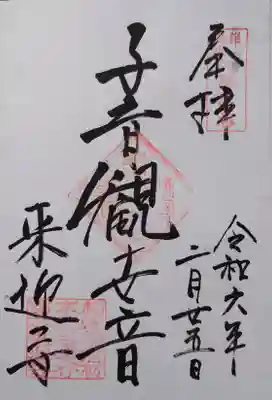 奉拝
令和六年
二月廿五日
子育観世音
来迎寺